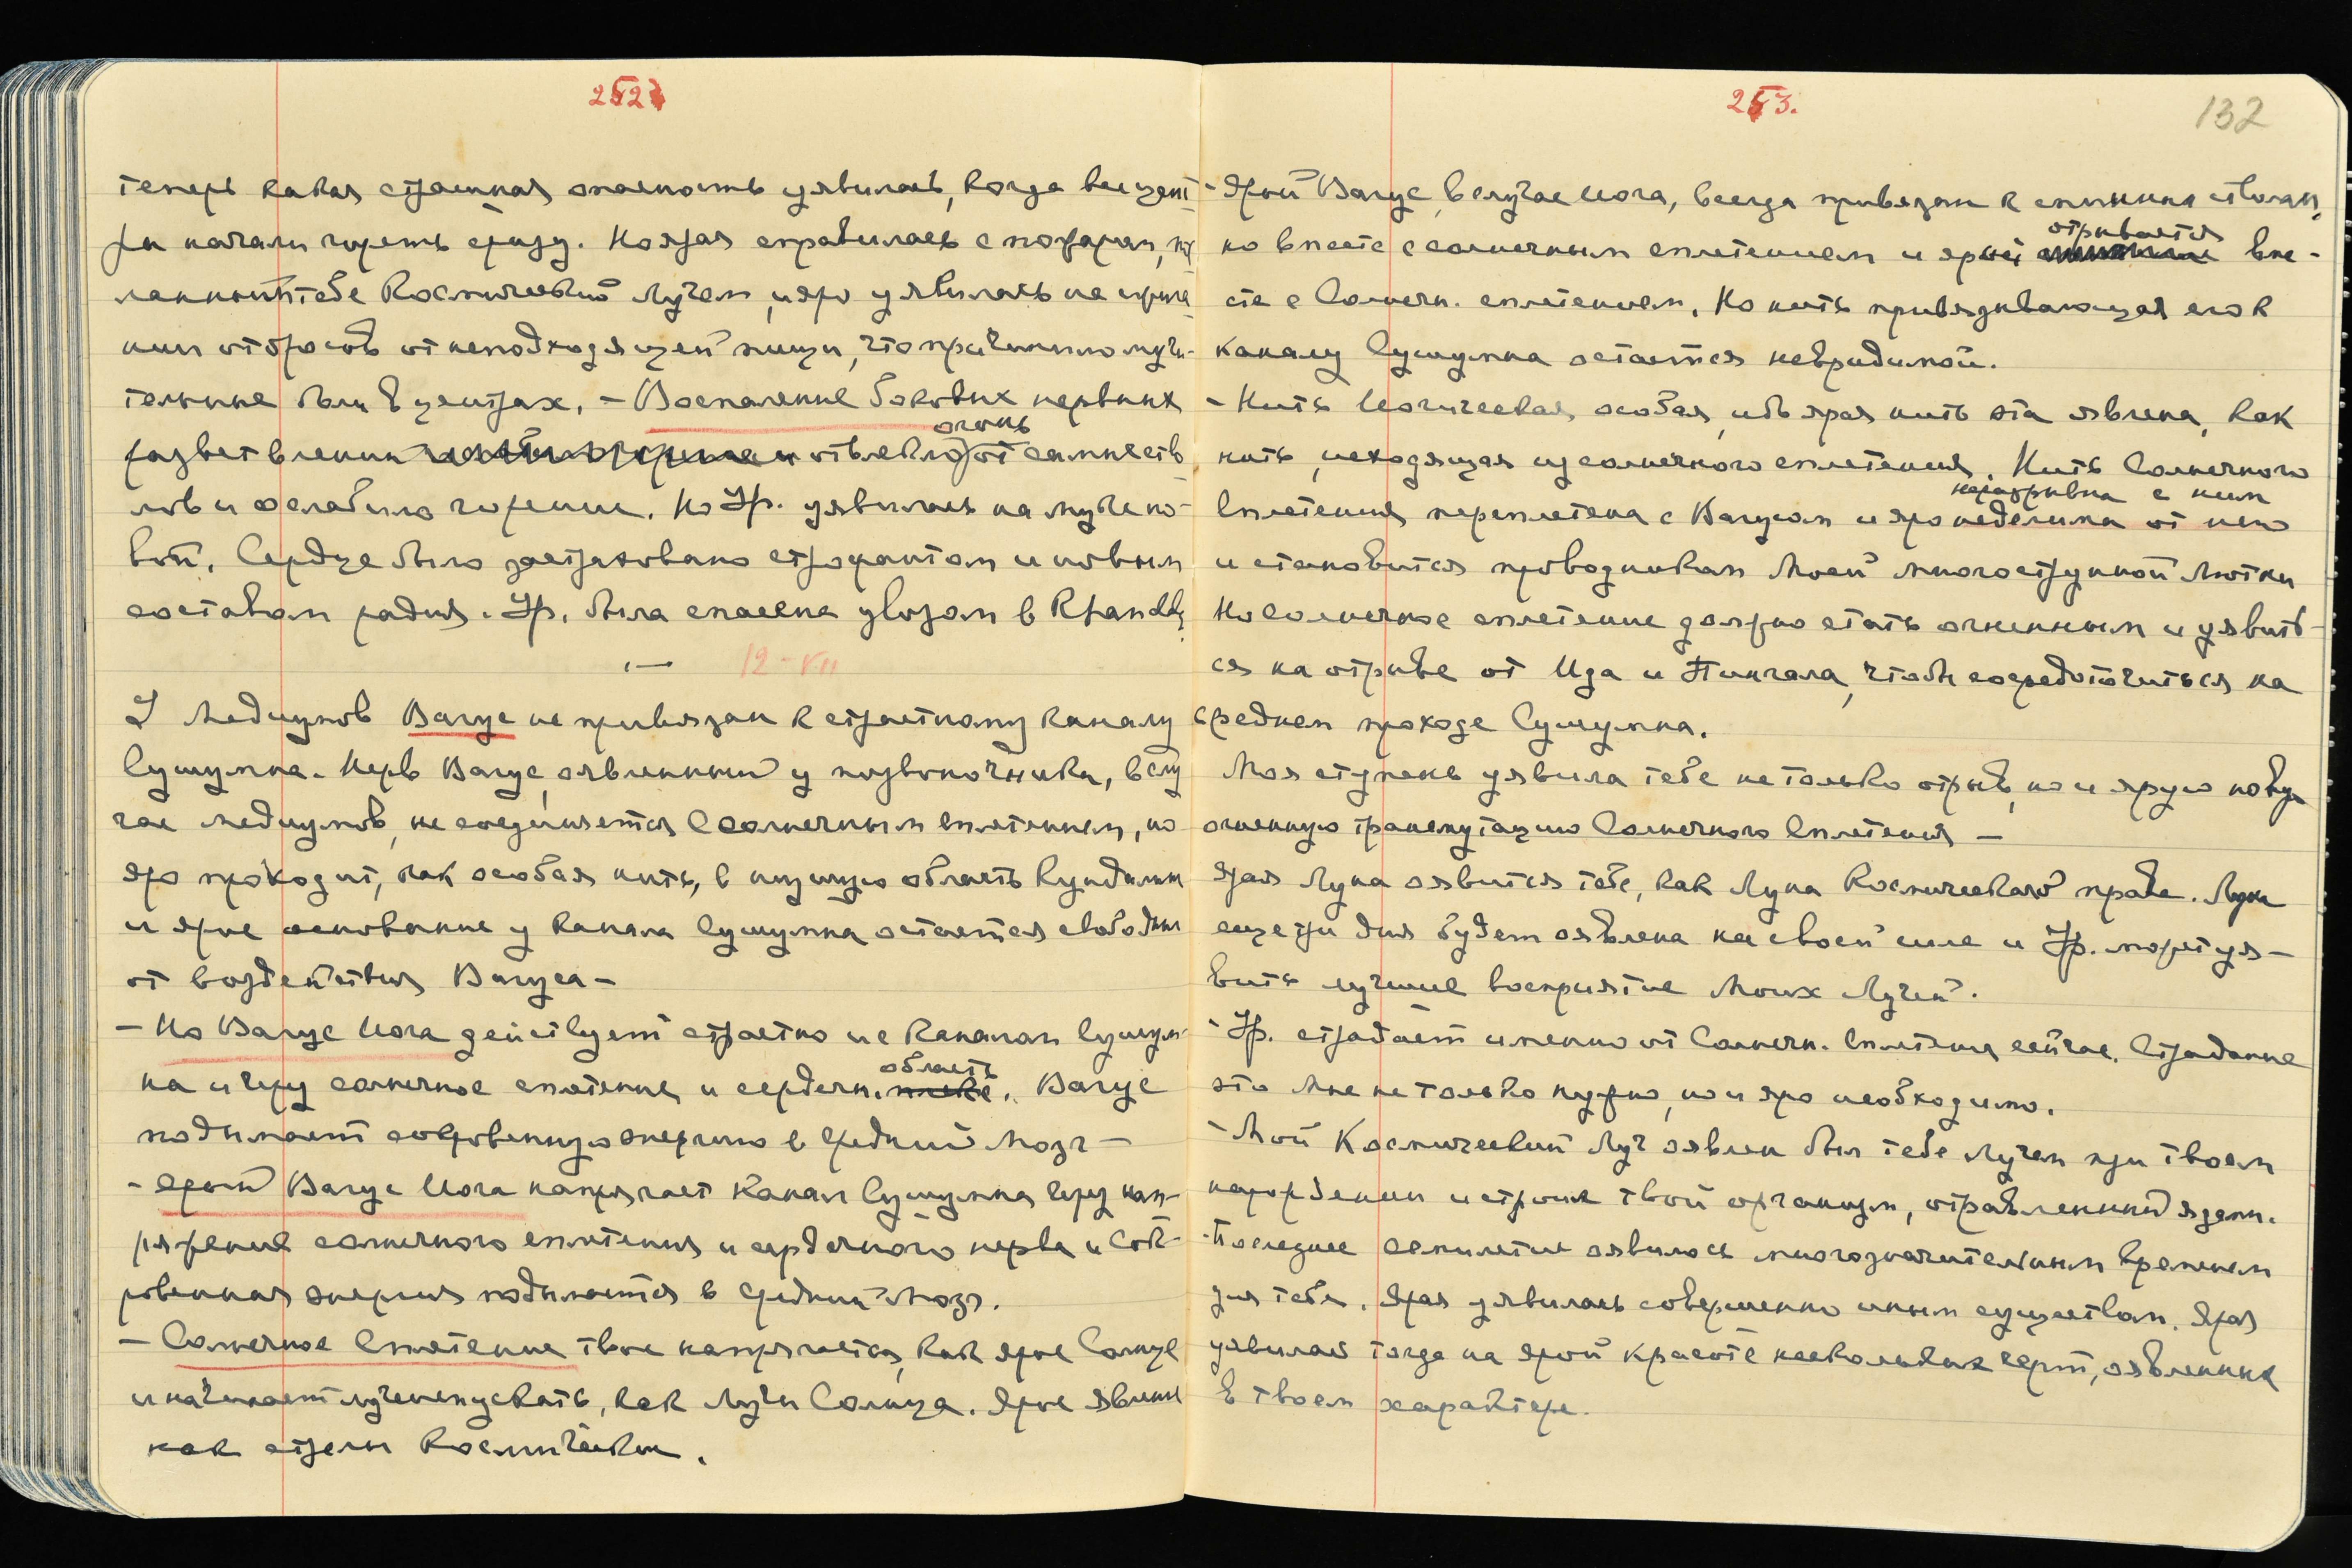 252
теперь какая страшная опасность уявилась, когда все цент-
ры начали гореть сразу. Но ярая справилась с пожаром,
тебе Космическим Лучом, и яро уявилась на
отбросов от неподходящей пищи, что причинило мучи-
тельные боли в центрах. – Воспаление боковых нервных
огонь
разветвлений отвлекло от самих ство-
лов и ослабило горение. Но Ур. уявилась на мучено-
вой. Сердце было застраховано строфантом и новым
составом радия. Ур. была спасена увозом в Khandala
12-VII
У медиумов Вагус не привязан к страстному каналу
Сушумна. Нерв Вагус, оявленный у позвоночника, в слу-
чае медиумов, не соединяется с солнечным сплетением, но
яро проходит, как особая нить, в низшую область Кундалини
и ярое основание у канала Сушумна остается свободным
от воздействия Вагуса –
– Но Вагус Йога действует страстно и с каналом Сушум-
область
на и через солнечное сплетение и сердечн. Вагус
подымает сокровенную энергию в Средний Мозг –
– Ярый Вагус Йога напрягает Канал Сушумна через нап-
ряжение солнечного сплетения и сердечного нерва и сок-
ровенная энергия подымается в Средний Мозг.
– Солнечное Сплетение твое напрягается, как ярое Солнце
и начинает лучеиспускать, как Лучи Солнца. Ярое явление
как стрелы Космические.
253.
132
- Ярый Вагус, в случае Йога, всегда привязан к спинным стволам,
отрывается
но вместе с солнечным сплетением и ярый вме-
сте с Солнечн. сплетением. Но нить привязывающая его к
каналу Сушумна остается невридимой.
- Нить Йогическая особая, ибо ярая нить эта явлена, как
нить, исходящая из солнечного сплетения. Нить Солнечного
неразрывна с ним
Сплетения переплетена с Вагусом и яро неделима от него
и становится проводником Моей многострунной Лютни
Но солнечное сплетение должно стать огненным и уявить-
ся на отрыве от Ида и Пингала, чтобы сосредоточиться на
среднем проходе Сушумна.
Моя ступень уявила тебе не только отрыв, но и ярую новую
огненную трансмутацию Солнечного Сплетения –
Ярая Луна оявится тебе, как Луна Космического права. Луна
еще три дня будет оявлена на своей силе и Ур. может уя-
вить лучшее восприятие Моих Лучей.
- Ур. страдает именно от Солнечн. Сплетения сейчас. Страдание
это Мне не только нужно, но и яро необходимо.
- Мой Космический Луч оявлен был тебе Лучом при твоем
нарождении и строил твой организм, отравленный ядами.
- Последнее семилетие оявилось многозначительным временем
для тебя. Ярая уявилась совершенно иным существом. Ярая
уявилась тогда на ярой красоте нескольких черт, оявленных
в твоем характере.